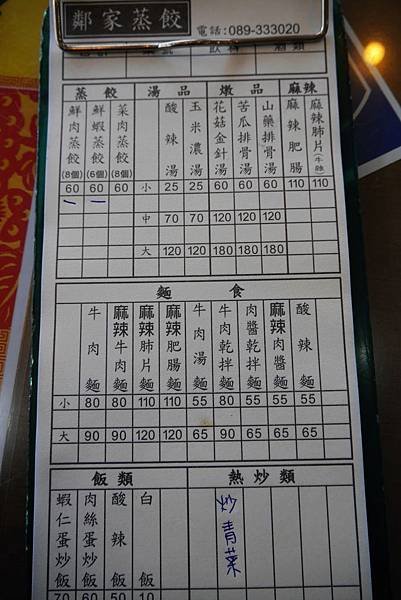 鄰家蒸餃
電話:089-333020
蒸餃 湯品 燉品 麻辣
鮮肉蒸餃(8個) 鮮蝦蒸餃(6個) 菜肉蒸餃(8個) 酸辣湯 玉米濃湯 花菇金針湯 苦瓜排骨湯 山藥排骨湯 麻辣肥腸 麻辣肺片(牛肚)
60 60 60 小 25 25 60 60 60 110 110
一 一 中 70 70 120 120 120
大 120 120 180 180 180
麵食
牛肉麵 麻辣牛肉麵 麻辣肺片麵 麻辣肥腸麵 牛肉湯麵 牛肉乾拌麵 肉醬乾拌麵 麻辣肉醬麵 酸辣麵
小 80 80 110 110 55 80 55 55 55
大 90 90 120 120 65 90 65 65 65
飯類 熱炒類
蝦仁蛋炒飯 肉絲蛋炒飯 酸辣飯 白飯 炒青菜
70 60 50 10